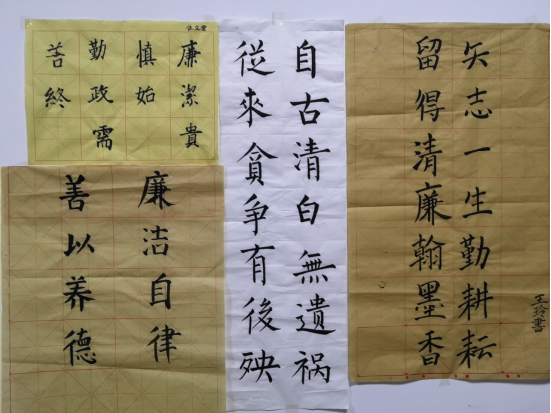 廉潔貴
慎始
勤政需
善終
廉洁自律
善以养德
自古清白無遺祸
從來貪爭有後殃
矢志一生勤耕耘
留得清廉翰墨香
王玲書